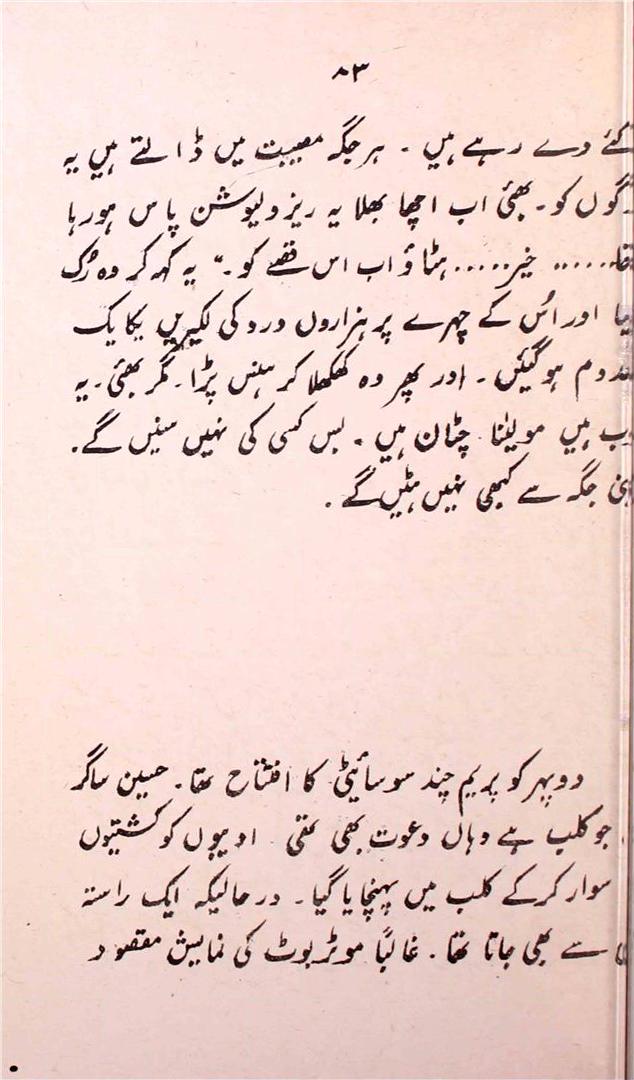 ۸۳
گئے دے رہے ہیں ۔ ہر جگہ مصیبت میں ڈالتے ہیں یہ
گوں کو۔ بھئی اب اچھا بھلا یہ ریزولیوشن پاس ہو رہا
تھا...... خیر..... ہٹاؤ اب اس قصّے کو۔" یہ کہہ کر وہ رُک
گیا اور اُس کے چہرے پر ہزاروں درد کی لکیریں یکایک
معدوم ہو گئیں ۔ اور پھر وہ کھکھلا کر ہنس پڑا۔ مگر بھئی۔ یہ
ہیں مولیٰنا چٹان ہیں ۔ بس کسی کی نہیں سنیں گے۔
اپنی جگہ سے کبھی نہیں ہٹیں گے ۔
دوپہر کو پریم چند سوسائیٹی کا افتتاح تھا۔ حسین ساگر
جو کلب ہے وہاں دعوت بھی تھی ۔ ادیبوں کو کشتیوں
سوار کر کے کلب میں پہنچایا گیا۔ درحالیکہ ایک راستہ
سے بھی جاتا تھا۔ غالباً موٹر بوٹ کی نمایش مقصود